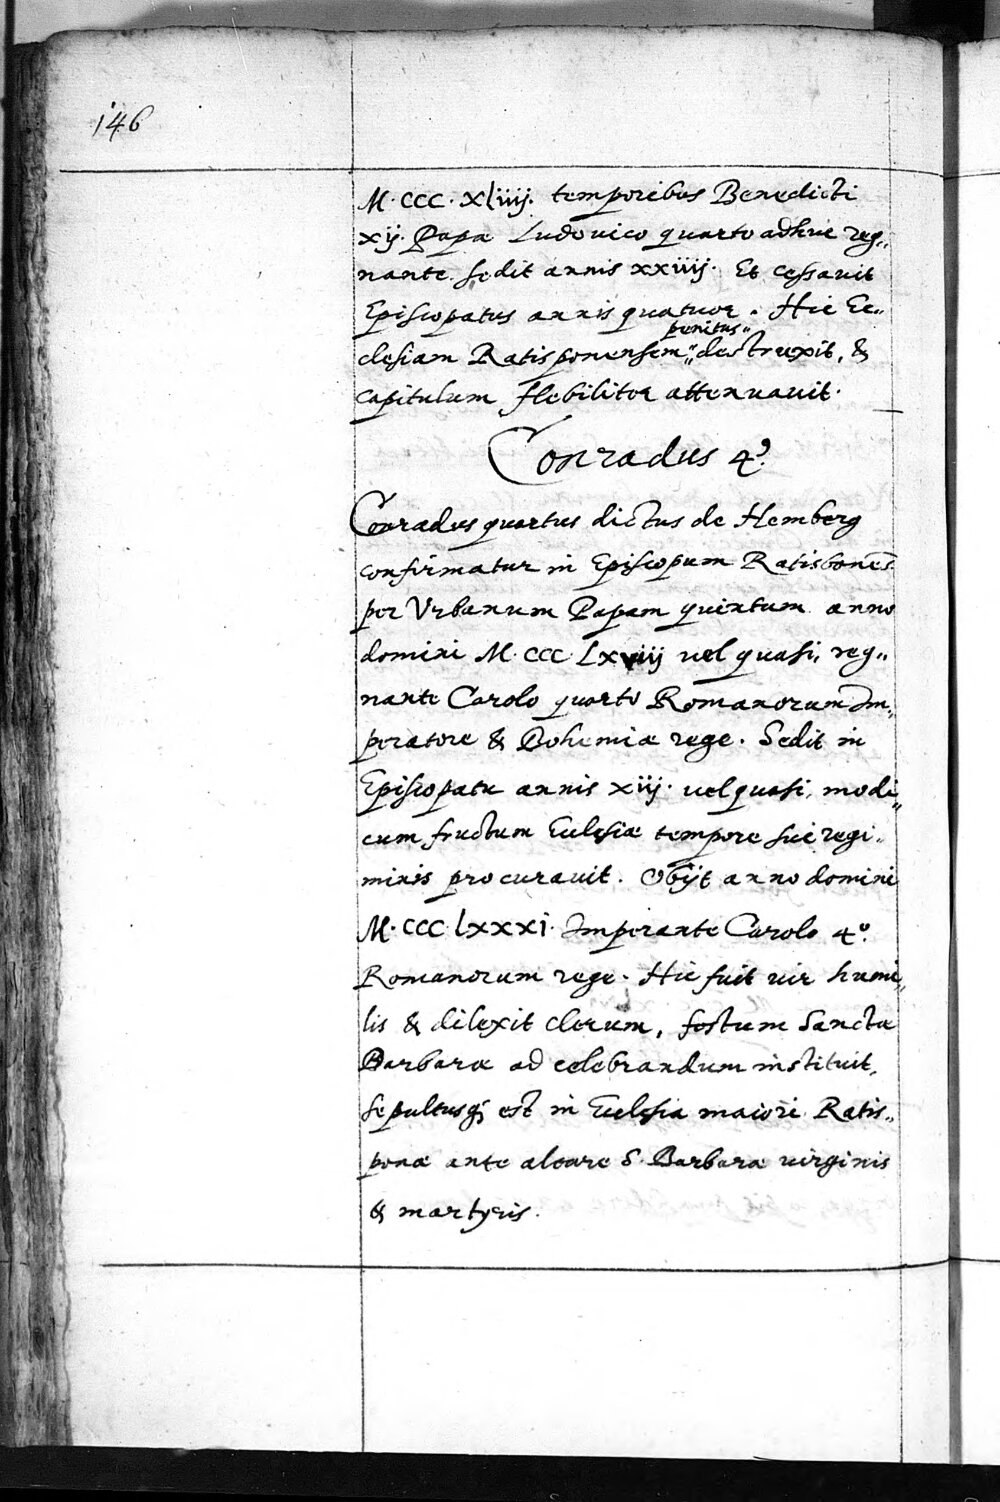 146
M·CCC·xliiij. temporibus Benedicti
xij. Papæ Ludouico quarto adhuc reg„
nante sedit annis xxiiij. Et cessauit
Episcopatus annis quatuor. Hic Ec„
penitus„
clesiam Ratisponensem „ destruxit, &
capitulum flebiliter attenuauit.
Conradus 4⁹.
Conradus quartus dictus de Hemberg
confirmatur in Episcopum Ratisbonens̄
per Vrbanum Papam quintum anno
domini M·CCC·Lxviij uel quasi, reg„
nante Carolo quarto Romanorum Im„
peratore & Bohemiæ rege. Sedit in
Episcopatu annis xiij. uel quasi, modi„
cum fructum Ecclesiæ tempore sui regi„
minis procurauit. Obijt anno domini
M·CCC·lxxxi. Imperante Carolo 4º.
Romanorum rege. Hic fuit vir humi„
lis & dilexit clerum, festum Sanctæ
Barbaræ ad celebrandum instituit,
sepultusq; est in Ecclesia maiori Ratis„
ponæ ante altare S. Barbaræ virginis
& martyris.